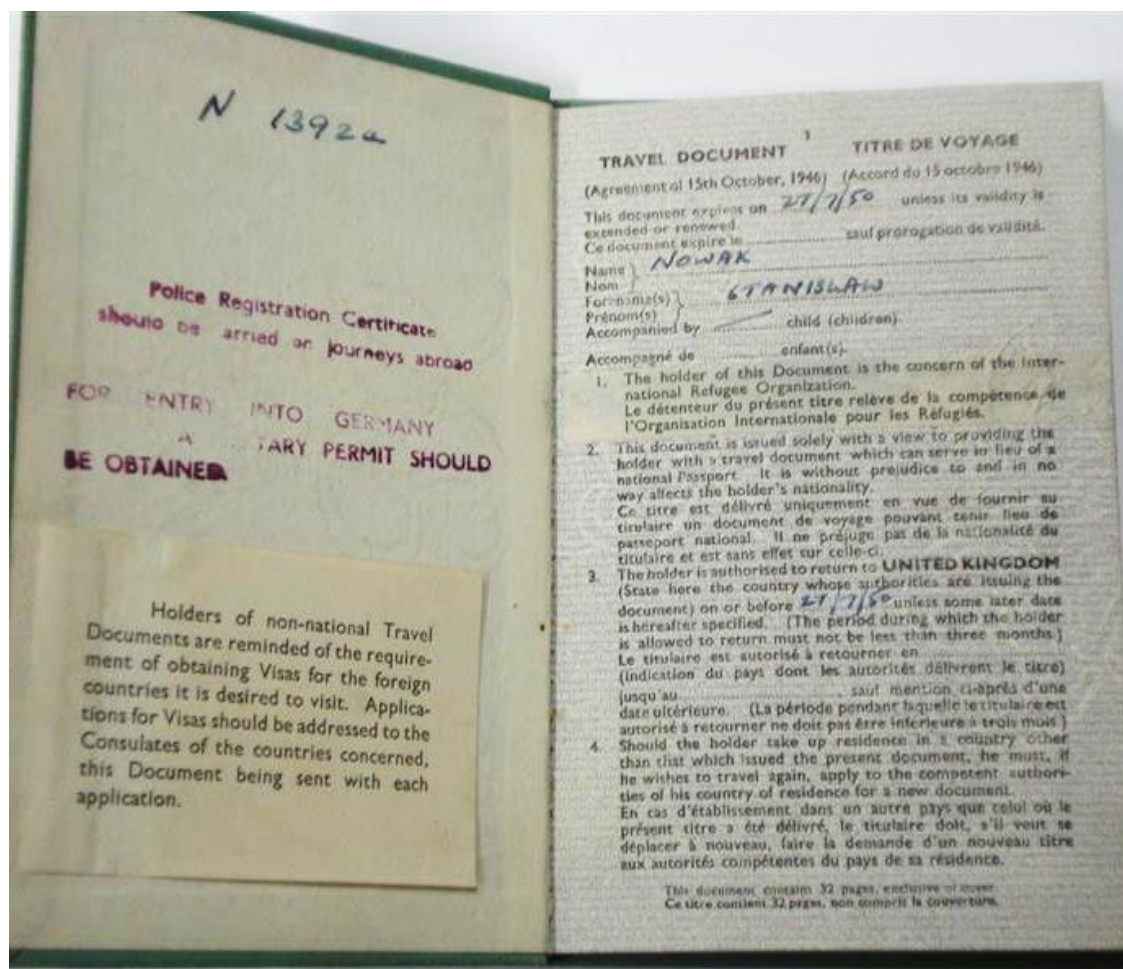 N 13922
Police Registration Certificate
should be arried on journeys abroad
FOR ENTRY INTO GERMANY
A TARY PERMIT SHOULD
BE OBTAINED
Holders of non-national Travel
Documents are reminded of the require-
ment of obtaining Visas for the foreign
countries it is desired to visit. Applica-
tions for Visas should be addressed to the
Consulates of the countries concerned,
this Document being sent with each
application.
1
TRAVEL DOCUMENT TITRE DE VOYAGE
(Agreement of 15th October, 1946) (Accord du 15 octobre 1946)
This document expires on 27/7/50 unless its validity is
extended or renewed.
Ce document expire le sauf prorogation de validité.
Name } NOWAK
Nom
Forename(s) } STANISLAW
Prénom(s)
Accompanied by child (children).
Accompagné de enfant(s).
1. The holder of this Document is the concern of the Inter-
national Refugee Organization.
Le détenteur du présent titre relève de la compétence de
l'Organisation Internationale pour les Réfugiés.
2. This document is issued solely with a view to providing the
holder with a travel document which can serve in lieu of a
national Passport. It is without prejudice to and in no
way affects the holder's nationality.
Ce titre est délivré uniquement en vue de fournir au
titulaire un document de voyage pouvant tenir lieu de
passeport national. Il ne préjuge pas de la nationalité du
titulaire et est sans effet sur celle-ci.
3. The holder is authorised to return to UNITED KINGDOM
(State here the country whose authorities are issuing the
document) on or before 27/7/50 unless some later date
is hereafter specified. (The period during which the holder
is allowed to return must not be less than three months.)
Le titulaire est autorisé à retourner en
(indication du pays dont les autorités délivrent le titre)
jusqu'au sauf mention ci-après d'une
date ultérieure. (La période pendant laquelle le titulaire est
autorisé à retourner ne doit pas être inférieure à trois mois.)
4. Should the holder take up residence in a country other
than that which issued the present document, he must, if
he wishes to travel again, apply to the competent authori-
ties of his country of residence for a new document.
En cas d'établissement dans un autre pays que celui où le
présent titre a été délivré, le titulaire doit, s'il veut se
déplacer à nouveau, faire la demande d'un nouveau titre
aux autorités compétentes du pays de sa résidence.
This document contains 32 pages, exclusive of cover.
Ce titre contient 32 pages, non compris la couverture.